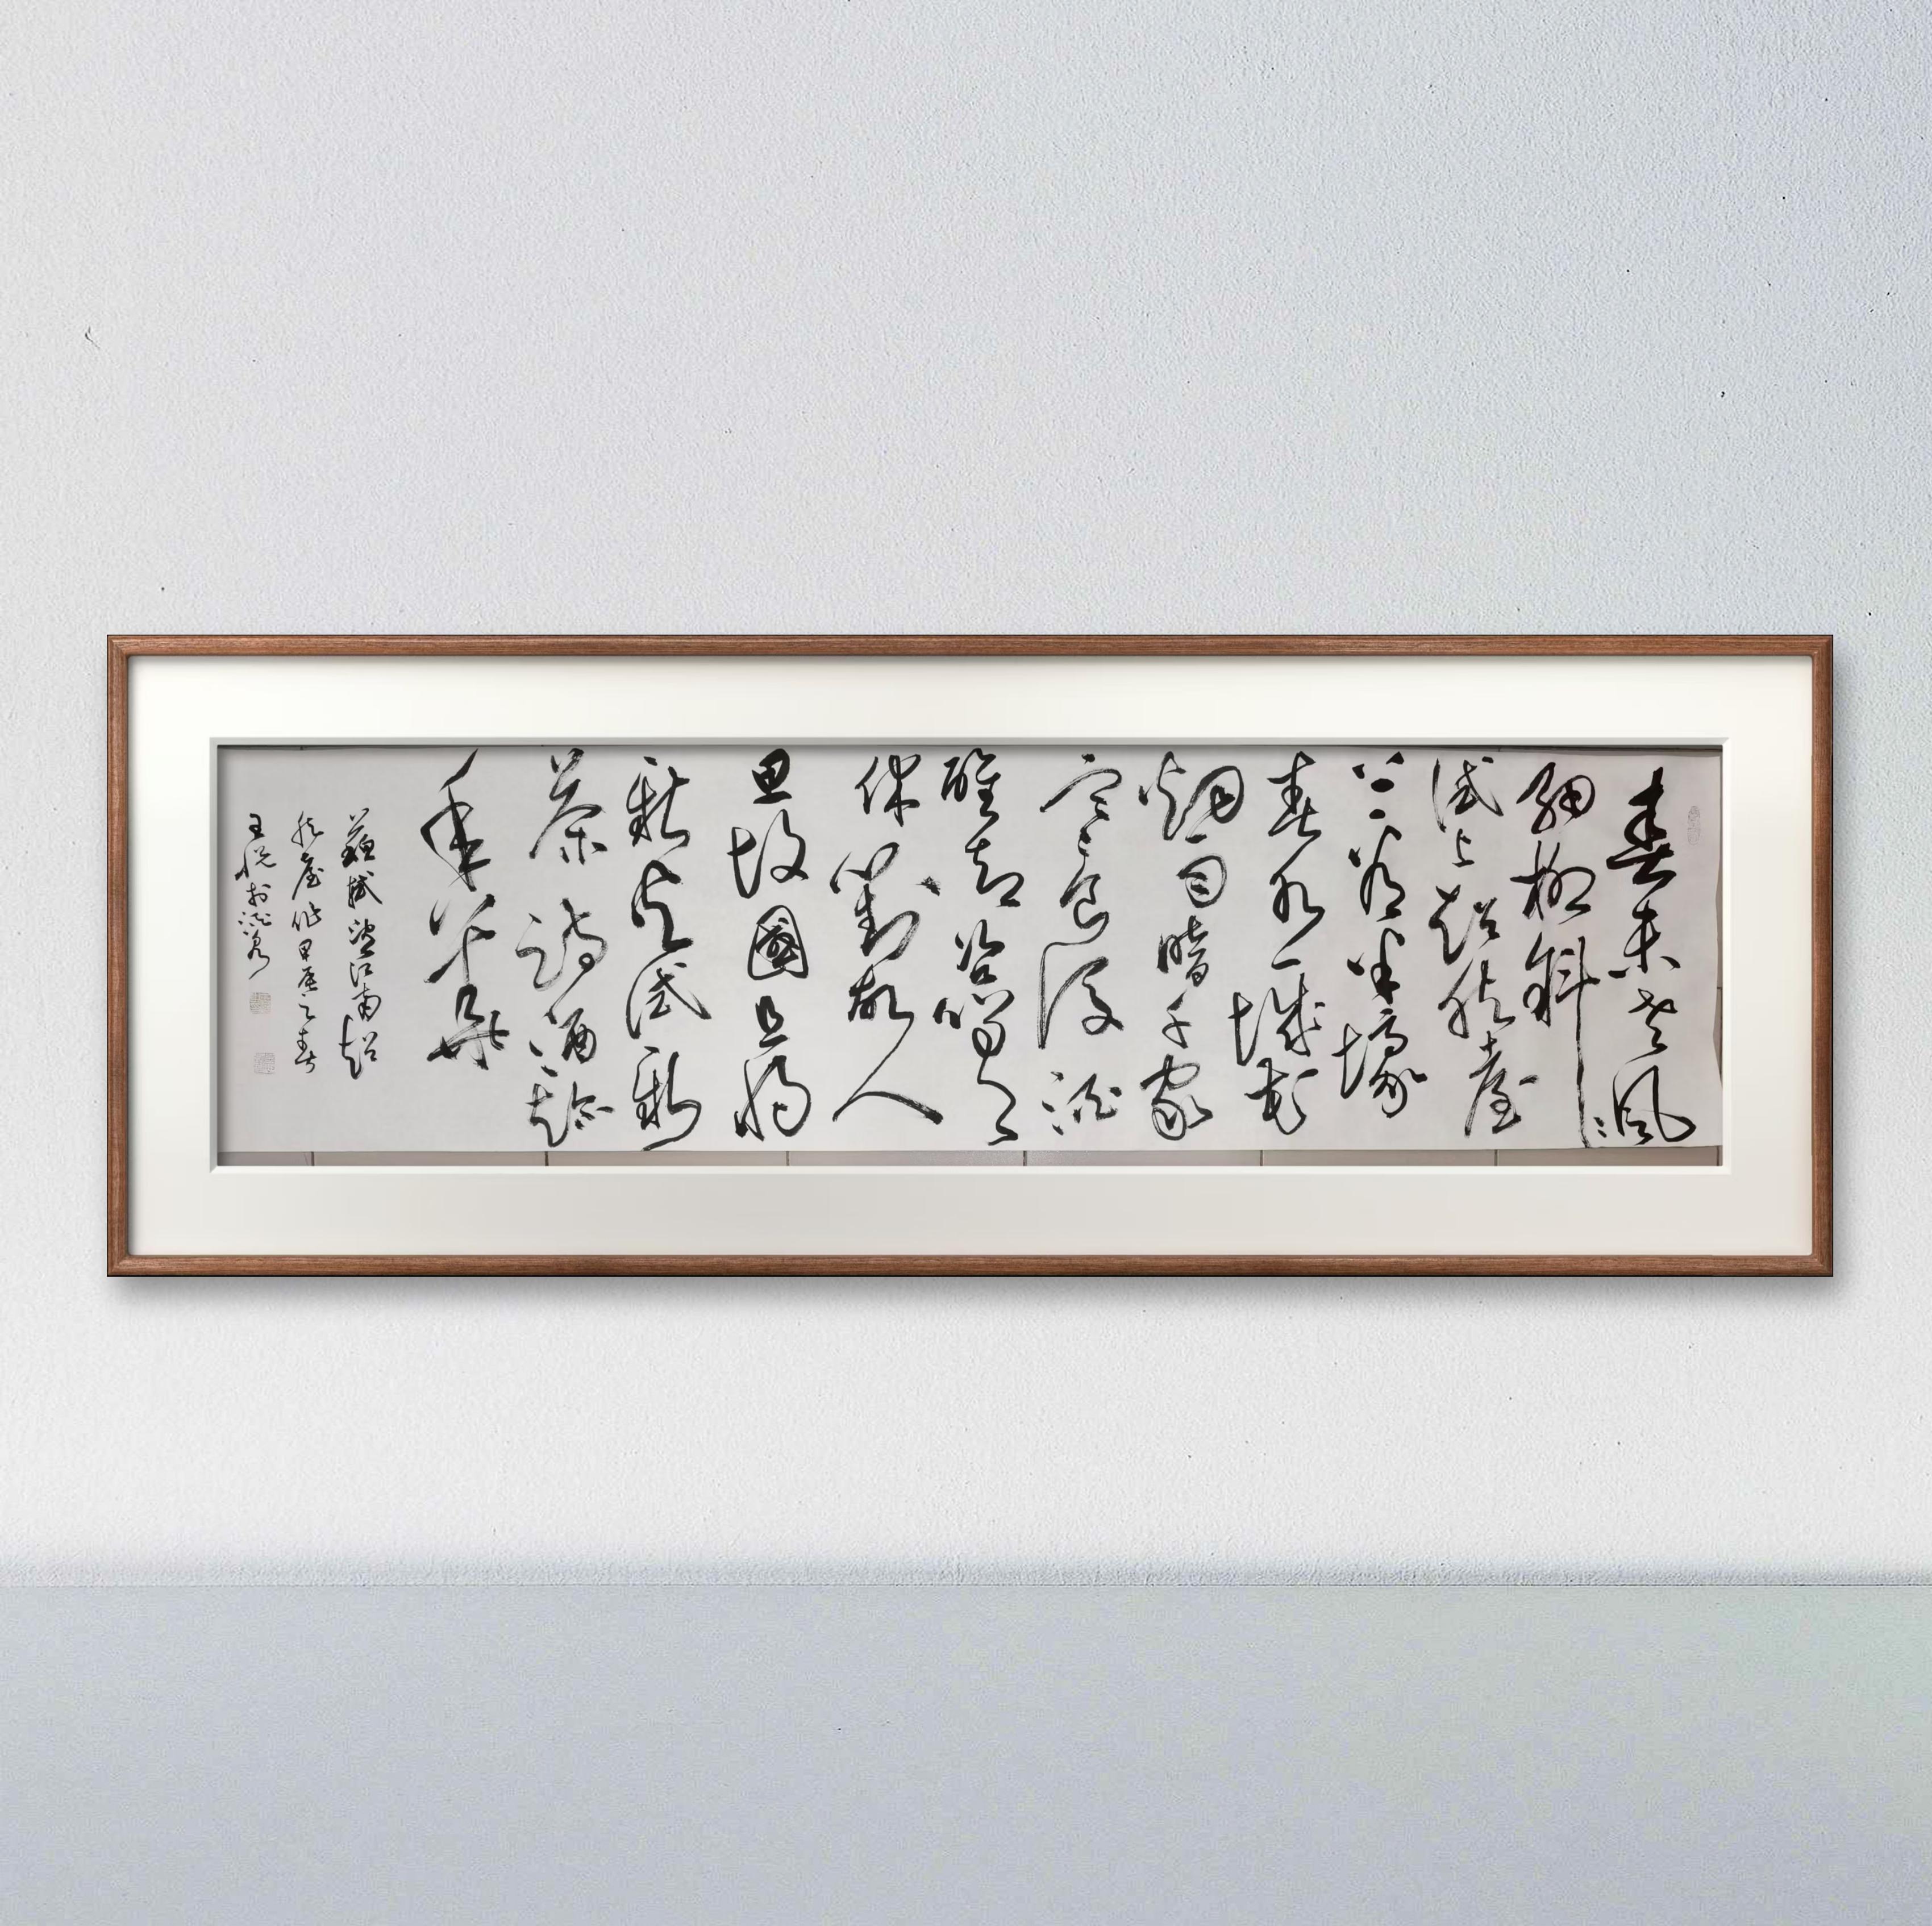 春未老風
細柳斜〻
試上超然臺
上看半壕
春水一城花
烟雨暗千家
寒食後酒
醒却咨嗟
休對故人
思故國且將
新火試新
茶詩酒趁
年華
蘇軾望江南超
然臺作甲辰之春
王悦於酒泉